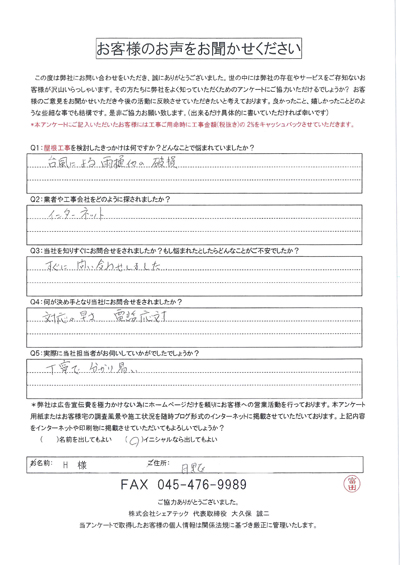 お客様のお声をお聞かせください
この度は弊社にお問い合わせをいただき、誠にありがとうございました。世の中には弊社の存在やサービスをご存知ないお
客様が沢山いらっしゃいます。その方たちに弊社をよく知っていただくためのアンケートにご協力いただけるでしょうか？ お客
様のご意見をお聞かせいただき今後の活動に反映させていただきたいと考えております。良かったこと、嬉しかったことどのよう
な些細な事でも結構です、是非ご協力お願い致します。(出来るだけ具体的に書いていただければ幸いです)
*本アンケートにご記入いただいたお客様には工事ご用命時に工事金額(税抜き)の2%をキャッシュバックさせていただきます。
Q1:屋根工事を検討したきっかけは何ですか？どんなことで悩まれていましたか？
台風による 雨樋他の 破損
Q2:業者や工事会社をどのように探されましたか？
インターネット
Q3:当社を知りすぐにお問合せをされましたか？もし悩まれたとしたらどんなことがご不安でしたか？
すぐに 問い合わせしました
Q4:何が決め手となり当社にお問合せをされましたか？
対応の早さ 電話応対
Q5:実際に当社担当者がお伺いしていかがでしたでしょうか？
丁寧で 分かり易い
*弊社は広告宣伝費を極力かけない為にホームページだけを頼りにお客様への営業活動を行っております。本アンケート
用紙またはお客様宅の調査風景や施工状況を随時ブログ形式のインターネットに掲載させていただいております。上記内容
をインターネットや印刷物に掲載させていただいてもよろしいでしょうか？
(　)名前を出してもよい　(○)イニシャルなら出してもよい
お名前: H 様 ご住所:
FAX 045-476-9989
ご協力ありがとうございました。
株式会社シェアテック 代表取締役 大久保 誠二
当アンケートで取得したお客様の個人情報は関係法規に基づき厳正に管理いたします。